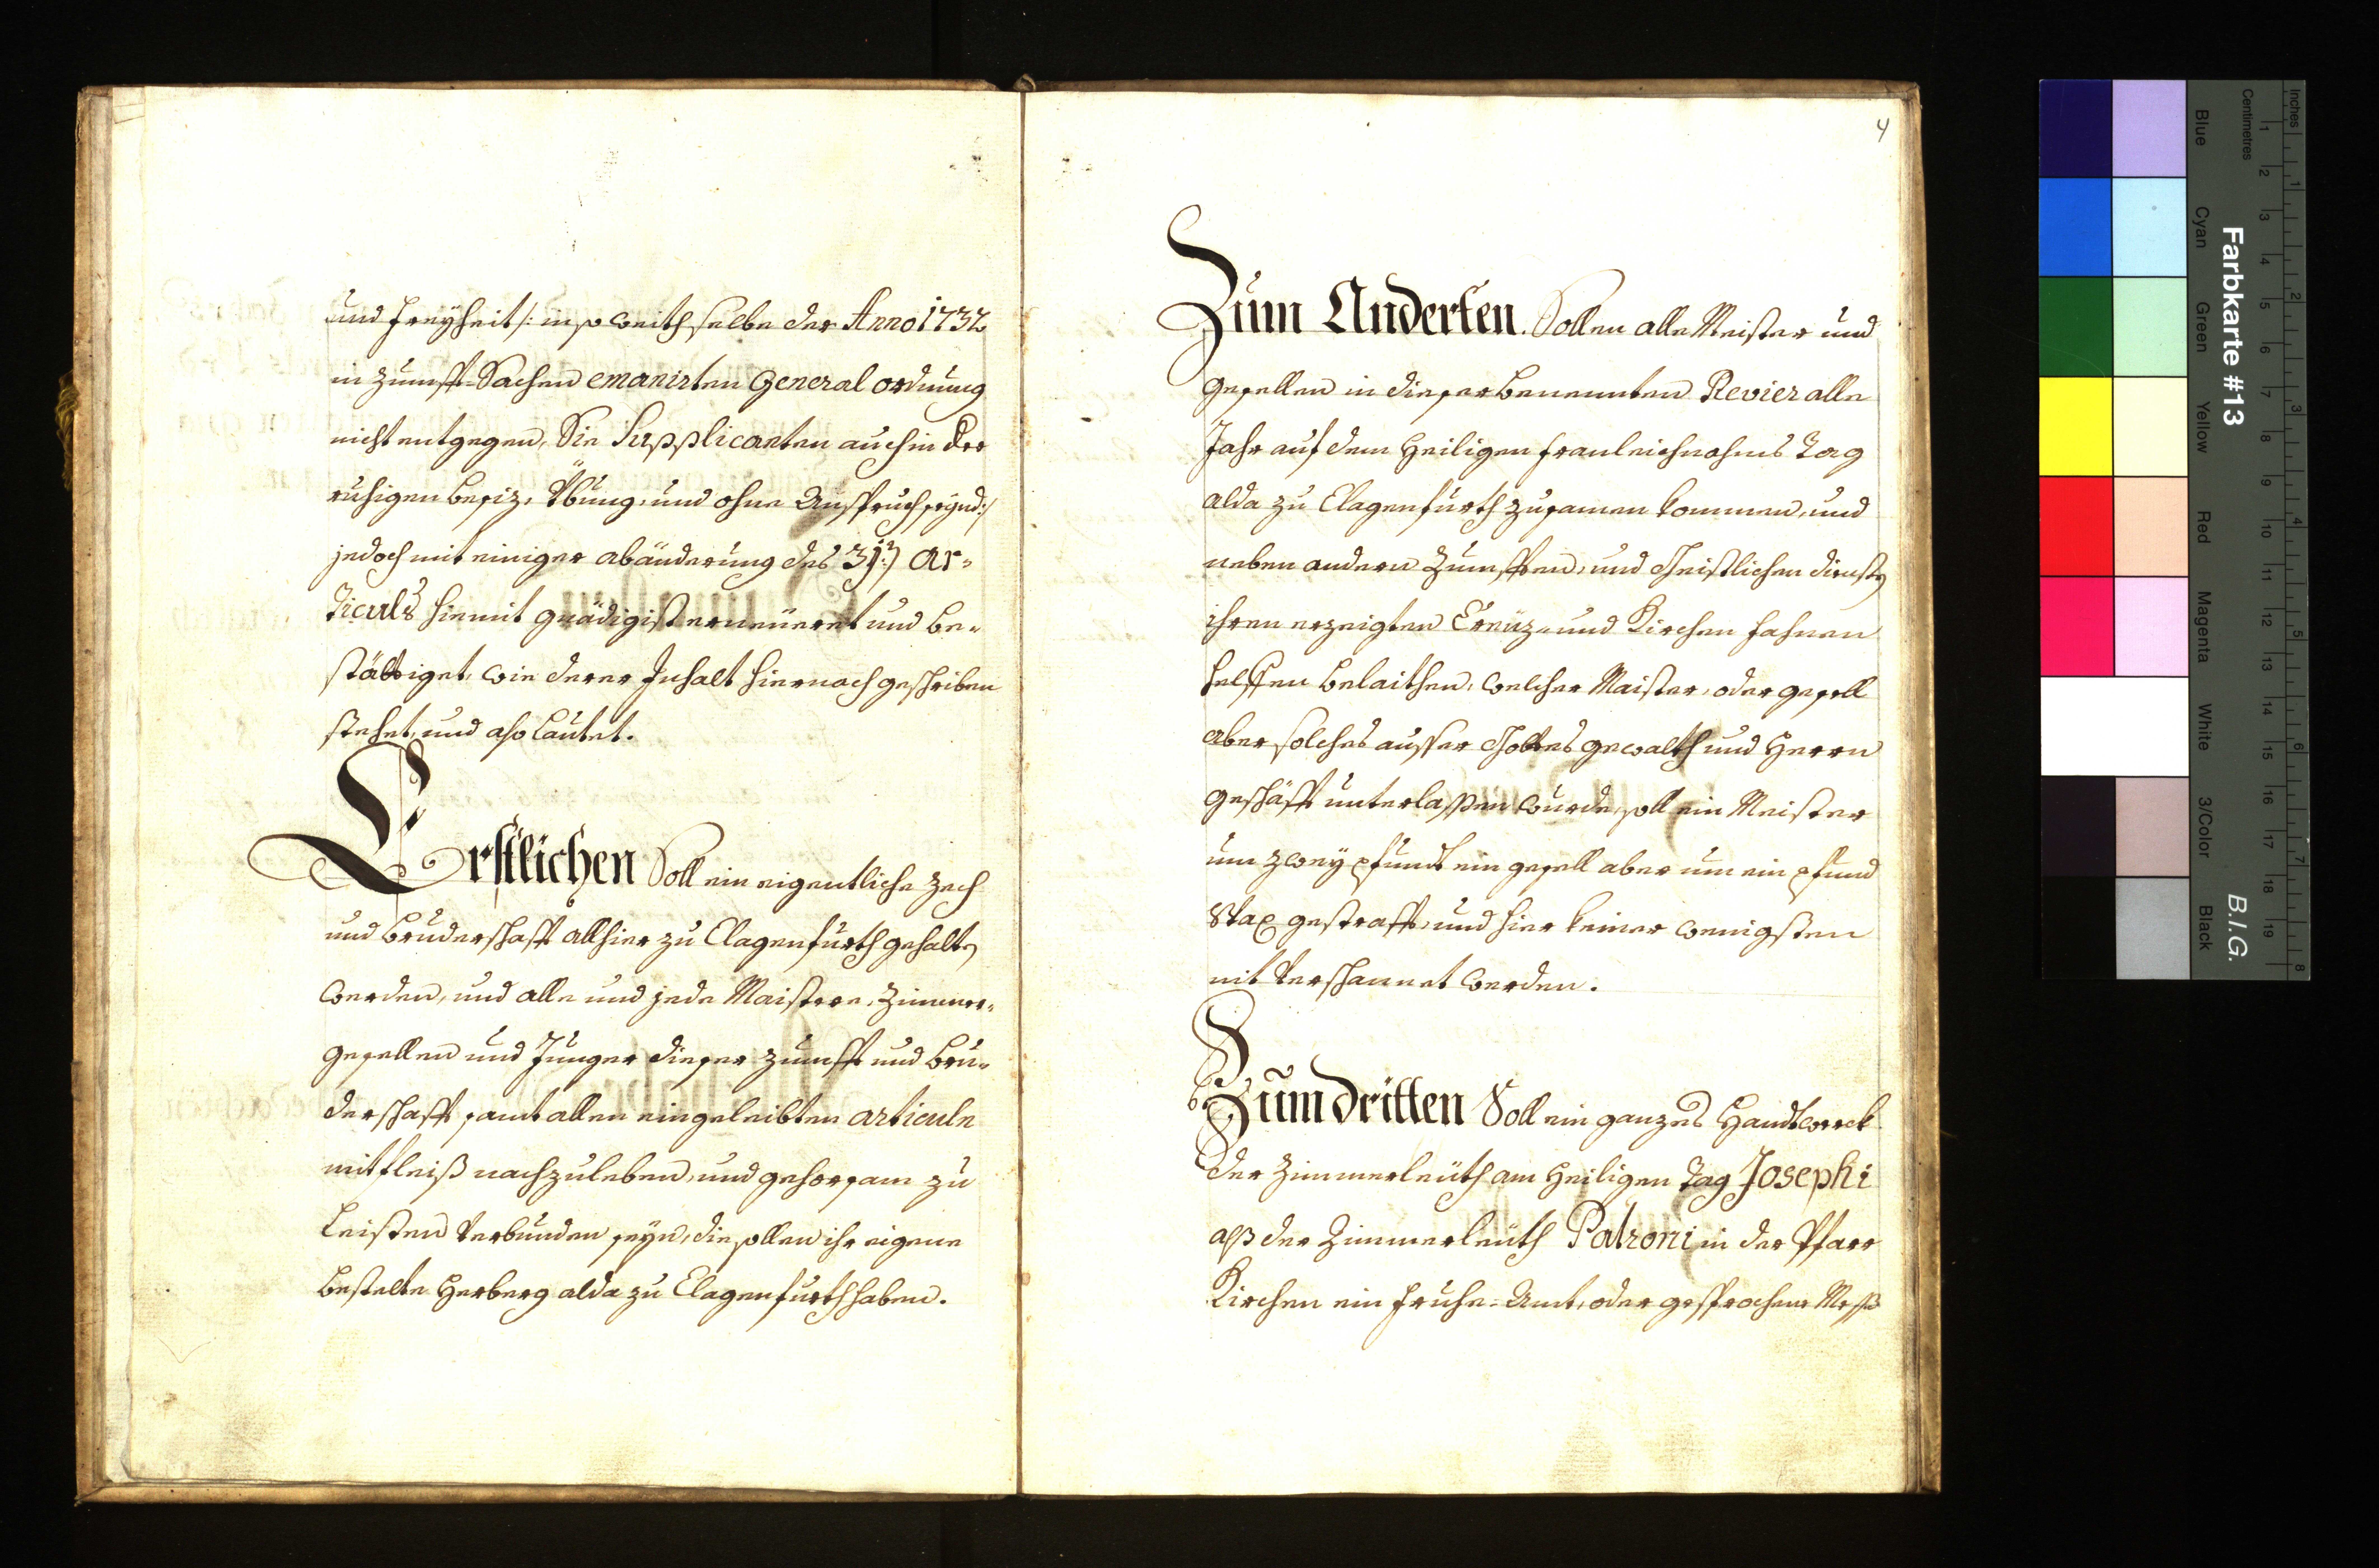 und Freyheit /: in so weith selbe der Anno 1732
in Zunfft-Sachen emanirten General ordnung
nicht entgegen, Sie Supplicanten auch in der
ruhigen Besiz, Übung, und ohne Anspruch seynd :/
jedoch mit einiger abänderung des 31:ten Ar-
ticuls hiemit gnädigist erneüeret und be-
stättiget, wie derer Inhalt hiernach geschriben
stehet, und also lautet.
Erstlichen Soll ein eigentliche Zech
und Bruderschafft allhier zu Clagenfurth gehalten
werden, und alle und jede Maistere, Zimmer-
gesellen und Jünger dieser Zunfft und Bru-
derschafft samt allen eingeleibten articuln
mit fleiß nachzuleben, und gehorsam zu
Leisten Verbunden seyn, die sollen ihr eigene
bestelte Herberg alda zu Clagenfurth haben.
4
Zum Anderten. Sollen alle Meister und
gesellen in dieser benennten Revier alle
Jahr auf dem Heiligen Fronleichnahms Tag
alda zu Clagenfurth zusamen kommen, und
neben andern Zunfften, und Christlichen dienste
ihren erzeigten Creüz- und Kirchen Fahnen
helffen belaithen, welcher Maister, oder gesell
aber solches ausser Gottes gewalth und Herrn
geschäfft unterlassen wurde, soll ein Meister
um zwey pfundt ein gesell aber um ein pfund
Wax gestrafft, und hier keiner wenigsten
nit Verschannet werden.
Zum dritten Soll ein ganzes Handtwerck
der Zimmerleüth am Heiligen Tag Josephi
alß der Zimmerleüth Patroni in der Pfarr
Kirchen ein Fruhe-Amt, oder gesprochene Meß
Farbkarte #13
B.I.G.
Inches
Centimetres
Blue
Cyan
Green
Yellow
Red
Magenta
White
3/Color
Black